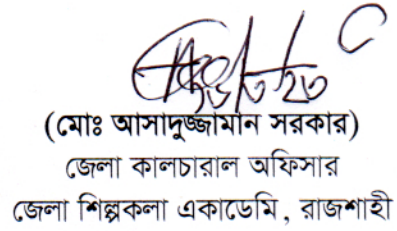 (মোঃ আসাদুজ্জামান সরকার)
জেলা কালচারাল অফিসার
জেলা শিল্পকলা একাডেমি, রাজশাহী